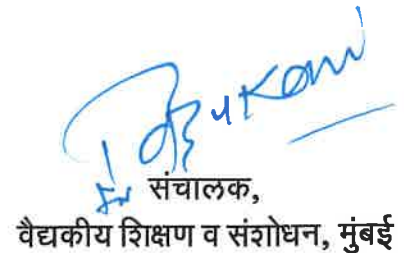 संचालक,
वैद्यकीय शिक्षण व संशोधन, मुंबई